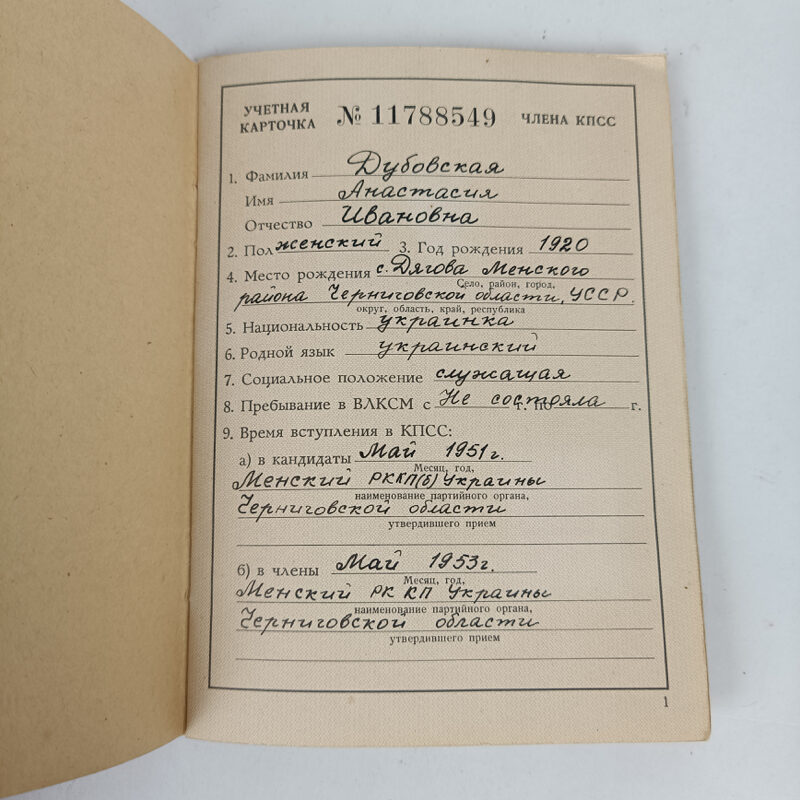 УЧЕТНАЯ КАРТОЧКА № 11788549 ЧЛЕНА КПСС
1. Фамилия Дубовская
Имя Анастасия
Отчество Ивановна
2. Пол женский 3. Год рождения 1920
4. Место рождения с. Дягова Менского
Село, район, город,
района Черниговской области, УССР.
округ, область, край, республика
5. Национальность украинка
6. Родной язык украинский
7. Социальное положение служащая
8. Пребывание в ВЛКСМ с Не состояла г. по г.
9. Время вступления в КПСС:
а) в кандидаты Май 1951 г.
Месяц, год,
Менский РККП(б) Украины
наименование партийного органа,
Черниговской области
утвердившего прием
б) в члены Май 1953 г.
Месяц, год,
Менский РК КП Украины
наименование партийного органа,
Черниговской области
утвердившего прием
1